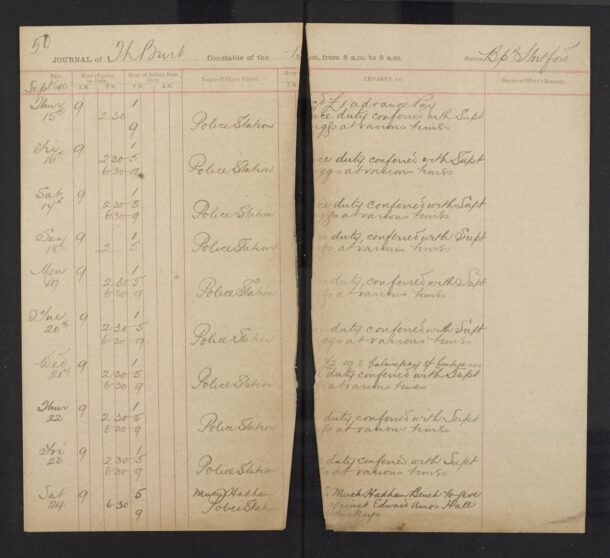 50
JOURNAL of Th Burt Constable of the on, from 8 a.m. to 8 a.m. Station Bp's Stortford
Date. Hour of going on Duty. Hour of Return from Duty. Name of Places Visited. Hour REMARKS, &c. Superior Officer's Remarks.
Sept A.M. P.M. P.M. A.M. P.M.
Thur 9 1 £1 advance Pay
15th 2 30 ce duty conferred with Supt
9 Police Station ngs at various times
Fri 9 1
16th 2 30 5 ce duty conferred with Supt
6 30 9 Police Station ngs at various times
Sat 9 1
17th 2 30 5 ce duty conferred with Supt
6 30 9 Police Station ngs at various times
Sun 9 1 ce duty, conferred with Supt
18th 2 5 Police Station gs at various times
Mon 9 1
19 2 30 5 duty, conferred with Supt
6 30 9 Police Station gs at various times
Tue 9 1
20th 2 30 5 ce duty conferred with Supt
6 30 9 Police Station ngs at various times
Wed 9 1
21st 2 30 5 duty conferred with Supt
6 30 9 Police Station s at various times
Thur 9 1
22 2 30 5 duty, conferred with Supt
6 30 9 Police Station gs at various times
Fri 9 1
23 2 30 5 duty conferred with Supt
6 30 9 Police Station gs at various times
Sat 9 5 Much Hadham Much Hadham Bench to give
24 6 30 Police Stati against Edward Amos Hall
9